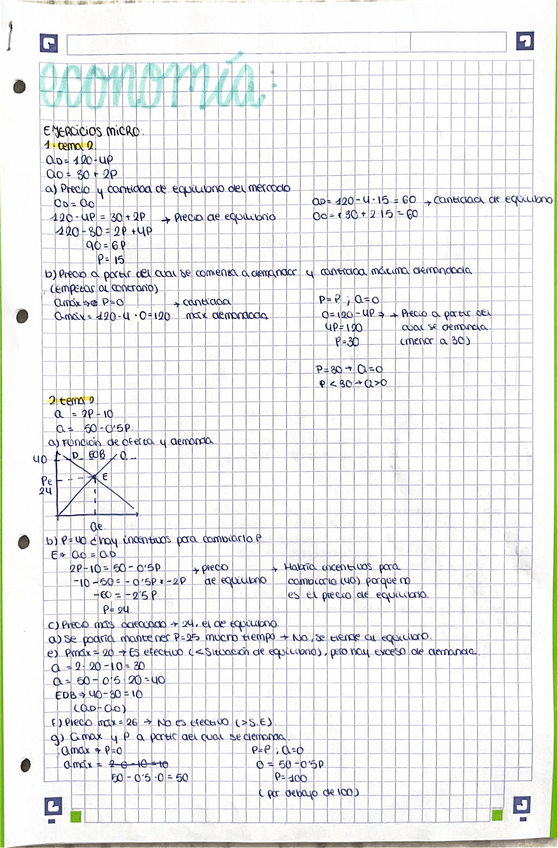 economía:
EJERCICIOS MICRO.
1. tema 2
QD = 120 - 4P
QO = 30 + 2P
a) Precio y cantidad de equilibrio del mercado
QD = QO
120 - 4P = 30 + 2P → Precio de equilibrio
120 - 30 = 2P + 4P
90 = 6P
P = 15
QD = 120 - 4 · 15 = 60 → Cantidad de equilibrio
QO = +30 + 2·15 = 60
b) Precio a partir del cual se comienza a demandar y cantidad máxima demandada
(empezar al contrario)
Qmáx → P=0 → cantidad
Qmáx = 120 - 4 · 0 = 120 máx demandada
P=P ; Q=0
0 = 120 - 4P → Precio a partir del
4P = 120 cual se demanda
P = 30 (menor a 30)
P = 30 → Q = 0
P < 30 → Q > 0
2. tema 2
Q = 2P - 10
Q = 50 - 0'5P
a) Función de oferta y demanda
40 D EOB O
Pe E
24
Qe
b) P=40 ¿hay incentivos para cambiarlo?
E → QO = QD
2P - 10 = 50 - 0'5P → precio
-10 - 50 = -0'5P + -2P de equilibrio
-60 = -2'5P
P = 24
→ Habría incentivos para
cambiarlo (40) porque no
es el precio de equilibrio.
c) Precio más adecuado → 24, el de equilibrio
d) Se podría mantener P=25 mucho tiempo → No, se tiende al equilibrio.
e) Pmáx = 20 → Es efectivo (< Situación de equilibrio), pero hay exceso de demanda.
Q = 2 · 20 - 10 = 30
Q = 50 - 0'5 · 20 = 40
EDB → 40 - 30 = 10
(QD - QO)
f) Precio máx = 26 → No es efectivo (> S.E)
g) Qmax y P a partir del cual se demanda.
Qmáx → P=0
Qmáx = 2·0-10=10
50 - 0'5 · 0 = 50
P=P ; Q=0
0 = 50 - 0'5P
P = 100
(por debajo de 100)